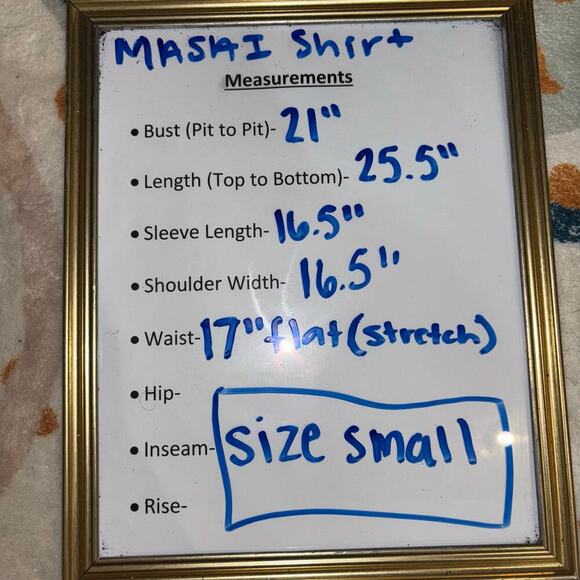 MASAI Shirt
Measurements
• Bust (Pit to Pit)- 21"
• Length (Top to Bottom)- 25.5"
• Sleeve Length- 16.5"
• Shoulder Width- 16.5"
• Waist- 17" flat (stretch)
• Hip-
• Inseam-
size small
• Rise-